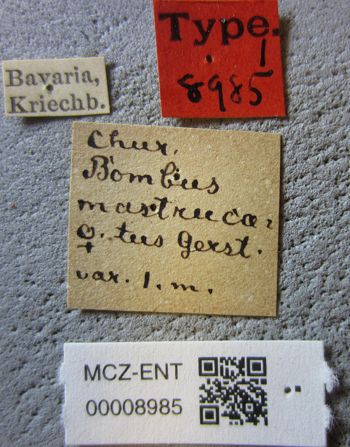 Type.
1
8985
Bavaria,
Kriechb.
Chur.
Bombus
mastruca=
♀. tus Gerst.
var. 1. m.
MCZ-ENT
00008985